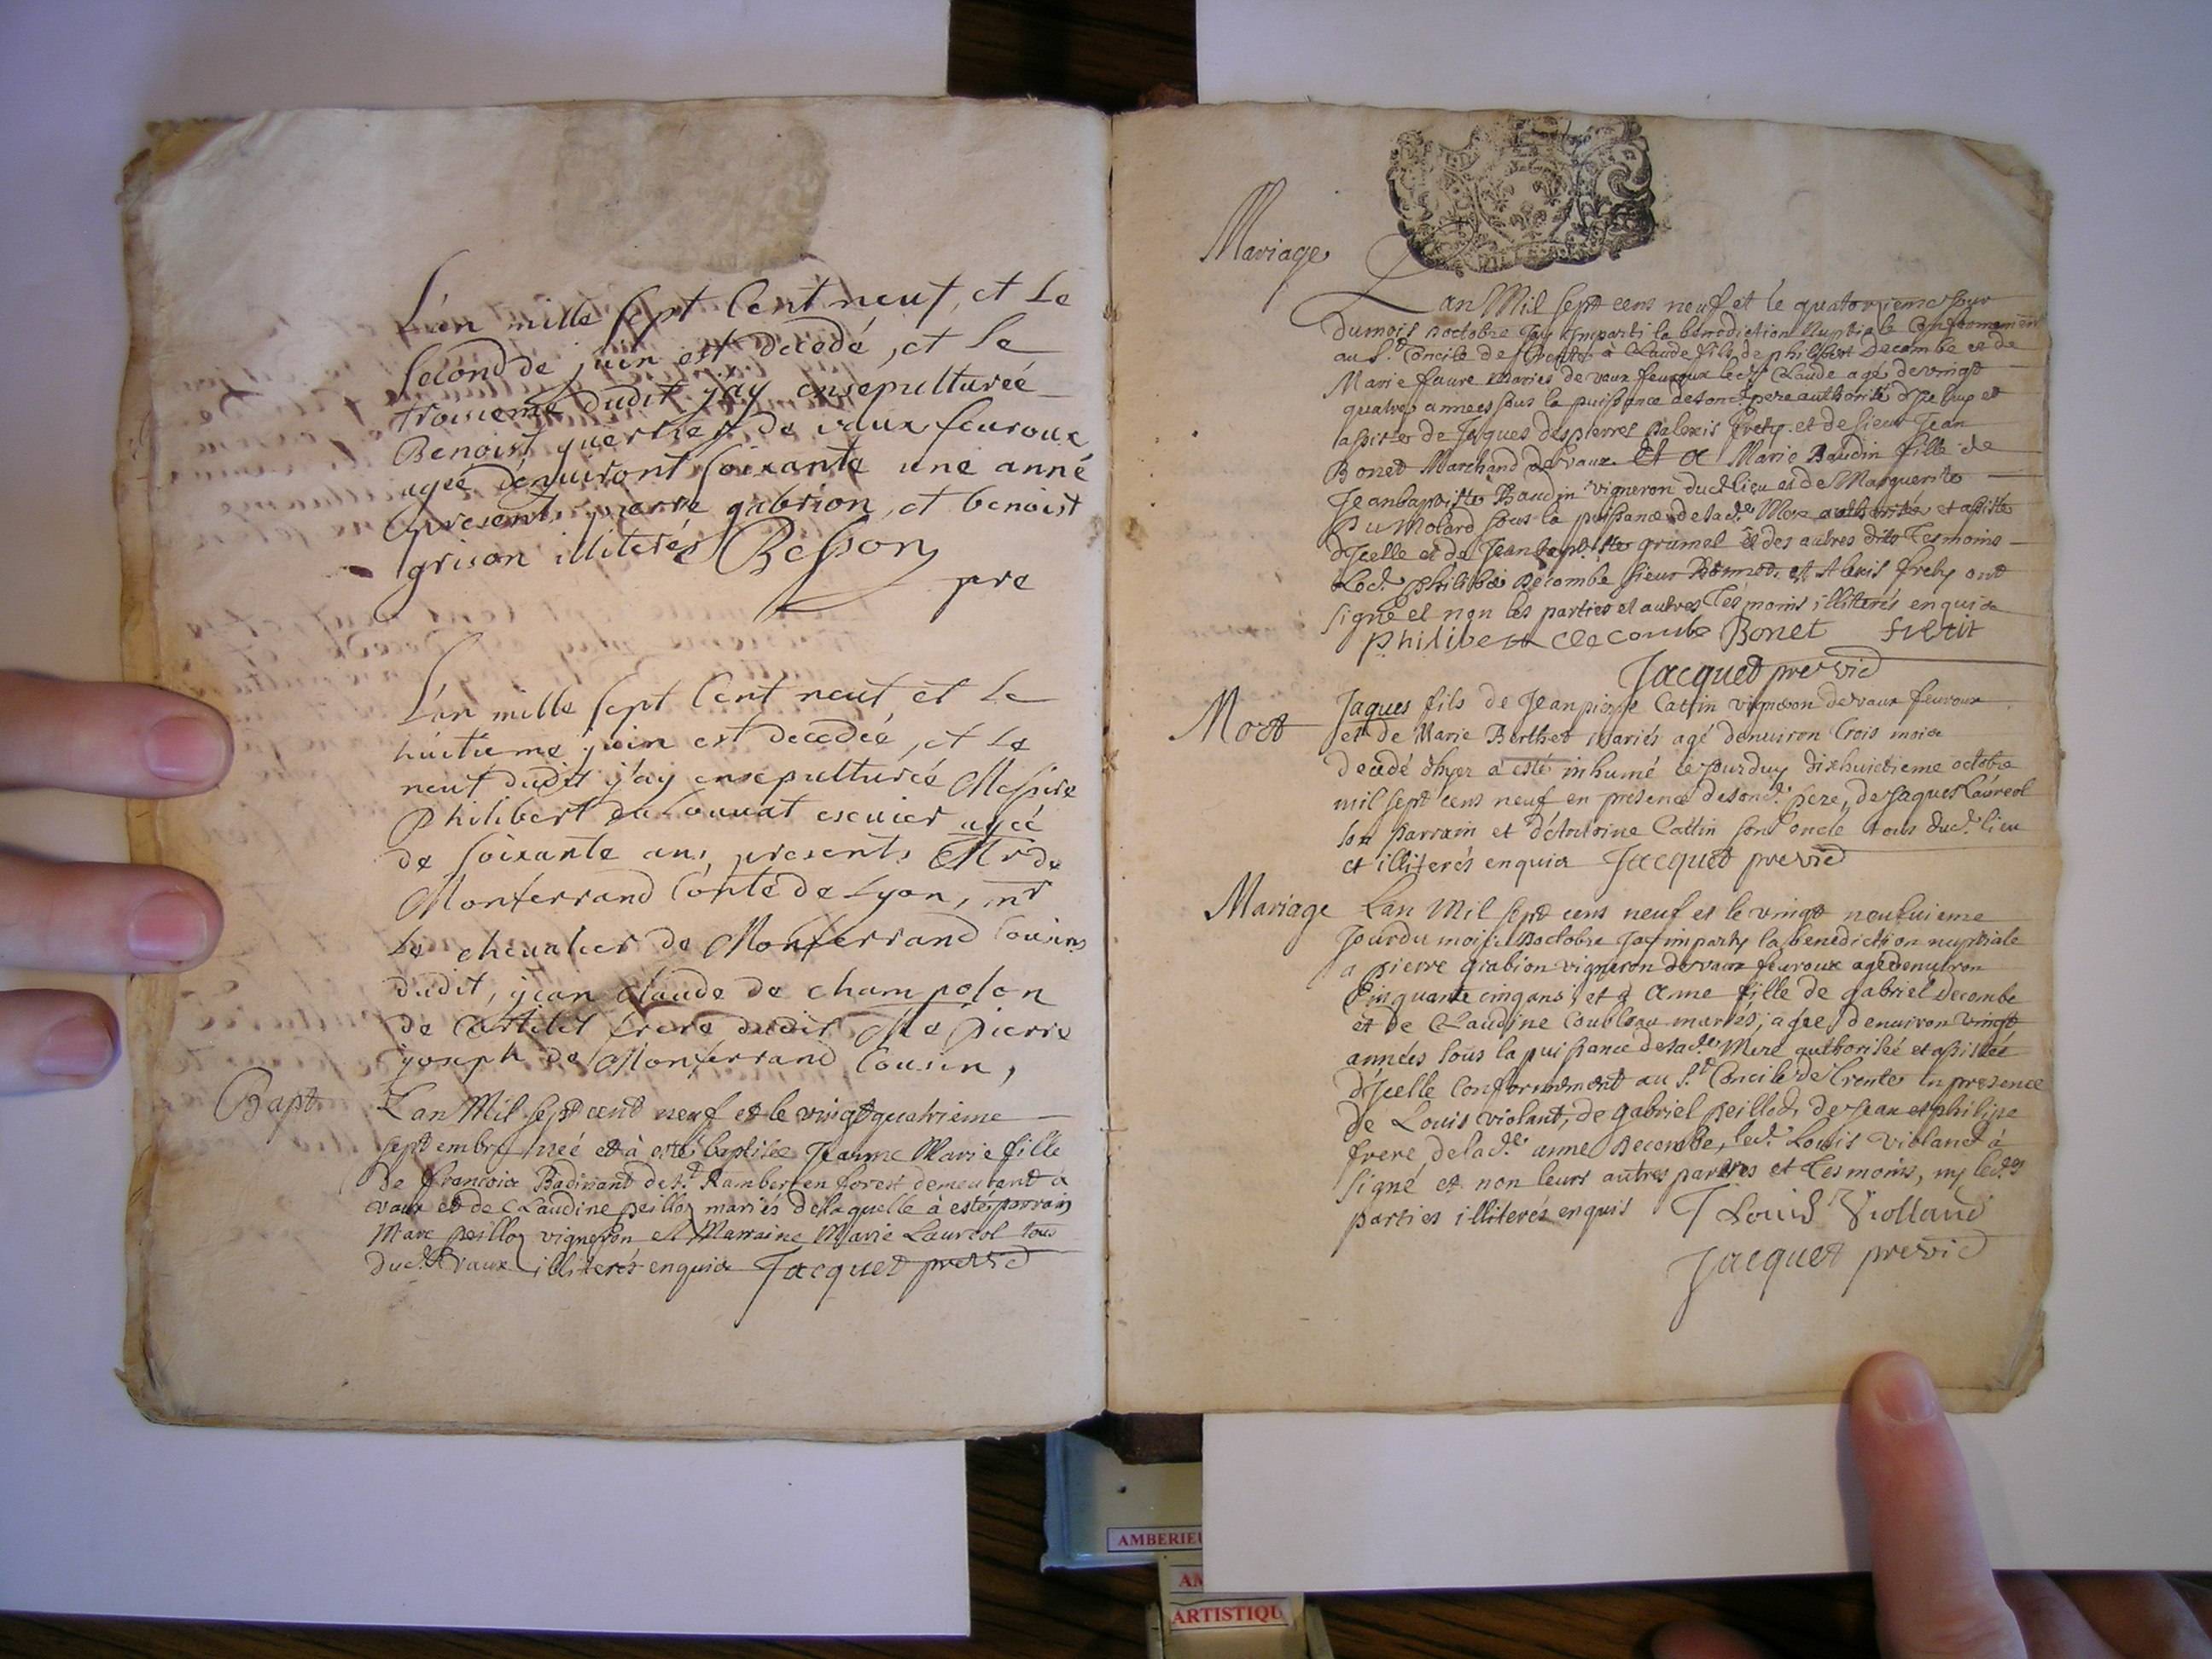 L'an mille sept Cent neuf, et le
second de juin est decedé, et le
troisieme dudit j'ay ensépulturée
Benoist guerrier de vaux feuroux
agée denuiront soixante une anné
presents pierre gabrion, et benoist
grison illiterés Besson
pre
L'an mille sept Cent neuf et le
huitieme juin est decedée, et le
neuf dudit j'ay ensepulturée Messire
Philibert du Louuat escuier agée
de soixante ans, presents Mr de
Monferrand Conte de Lyon, mr
Le cheualier de Monferrand Cousins
dudit, jean Claude de champolon
de frere dudit Me Pierre
joseph de Monferrand Cousin,
Bapt
Lan Mil sept cent neuf et le vingtquatrieme
septembre neé et à esté baptisée Jeanne Marie fille
de francois Badinand de St Rambert en forest demeurant a
vaux et de Claudine peilloz mariés de laquelle à esté parrain
Marc peilloz vigneron et Marraine Marie Laureol tous
dud. vaux illiterés enquis Jacquet previc
Mariage
Lan Mil sept cens neuf et le quatorzieme jour
du mois doctobre jay imparti la benediction Nuptiale Conformement
au St Concile de Trente à Claude fils de philibert Decombe et de
Marie faure mariés de vaux feuroux led. Claude agé de vingt
quatre années sous la puissance de son d. pere authorité diceluy et
assisté de Jaques despierres dalexis frety et de sieur Jean
Bonet Marchand de vaux Et a Marie Baudin fille de
Jeanbaptiste Baudin vigneron dud. lieu et de Marguerite
Du Molard sous la puissance de sade Mere authorisée et assistée
dicelle et de Jeanbapt.ste grumel et des autres dits Tesmoins
Led. philibert Decombe sieur Bonnet et Alexis frety ont
signé et non les parties et autres Tesmoins illiterés enquis
philibert decombe Bonet fretit
Jacquet previc
Mort
Jaques fils de Jean pierre Cattin vigneron de vaux feuroux
et de Marie Berthet Mariés agé denuiron trois mois
decedé dhyer à esté inhumé ce jourduy dixhuictieme octobre
mil sept cens neuf en presence de sond. pere, de Jaques Laureol
son parrain et d'Antoine Cattin son oncle tous dud. lieu
et illiterés enquis Jacquet previc
Mariage
Lan Mil sept cens neuf et le vingt neufuieme
Jour du mois doctobre Jay imparty la benediction nuptiale
a pierre grabion vigneron de vaux feuroux agé denuiron
Cinquante cinq ans, et à Anne fille de gabriel Decombe
et de Claudine mariés, agée denuiron vingt
années sous la puissance de sade Mere authorisée et assistée
dicelle Conformement au St Concile de Trente en presence
de Louis violant, de gabriel peillod, de Jean et philipe
frere de lade anne Decombe, led. Louis violand à
signé et non leurs autres parties et Tesmoins, ny lesd.
parties illiterés enquis Louis Violland
Jacquet previc
AMBERIEU
AM
ARTISTIQU